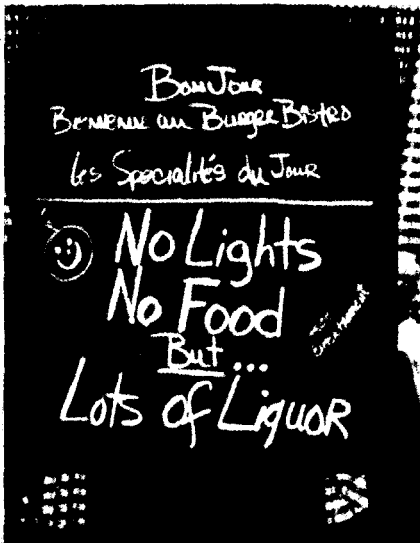 BonJour
Bienvenue au Burger Bistro
Les Spécialités du Jour
No Lights
No Food
But...
Lots of Liquor